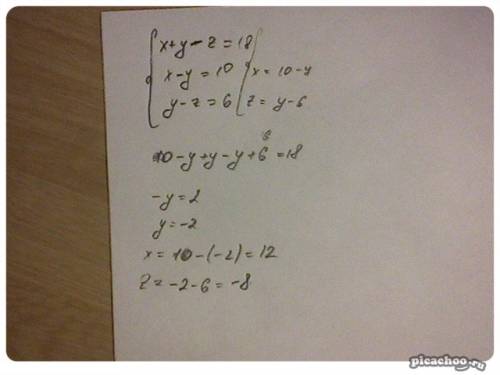 x+y-z=18
x-y=10 x=10-y
y-z=6 z=y-6
10-y+y-y+6=18
6
-y=2
y=-2
x=10-(-2)=12
z=-2-6=-8
picachoo.ru